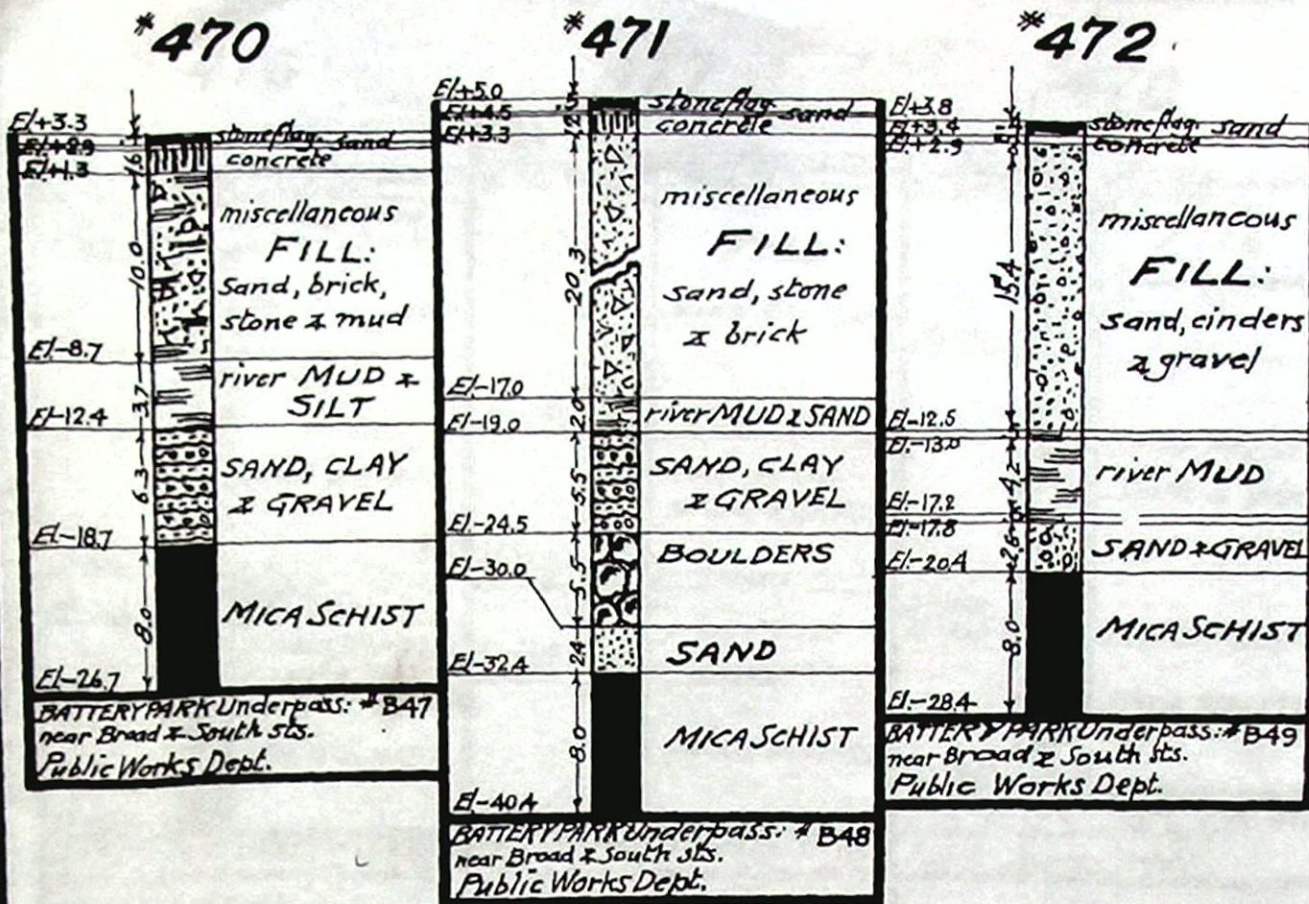 #470
El+3.3
El+2.9
El+1.3
.4
1.6
stoneflag sand
concrete
10.0
miscellaneous
FILL:
sand, brick,
stone & mud
El-8.7
3.7
river MUD &
SILT
El-12.4
6.3
SAND, CLAY
& GRAVEL
El-18.7
8.0
MICA SCHIST
El-26.7
BATTERY PARK Underpass: #B47
near Broad & South sts.
Public Works Dept.
#471
El+5.0
El+4.5
El+3.3
.5
1.2
stoneflag sand
concrete
20.3
miscellaneous
FILL:
sand, stone
& brick
El-17.0
2.0
river MUD & SAND
El-19.0
5.5
SAND, CLAY
& GRAVEL
El-24.5
5.5
BOULDERS
El-30.0
2.4
SAND
El-32.4
8.0
MICA SCHIST
El-40.4
BATTERY PARK Underpass: # B48
near Broad & South sts.
Public Works Dept.
#472
El+3.8
El+3.4
El+2.9
stoneflag sand
concrete
15.4
miscellaneous
FILL:
sand, cinders
& gravel
El-12.5
El-13.0
4.2
river MUD
El-17.2
El-17.8
2.6
SAND & GRAVEL
El-20.4
8.0
MICA SCHIST
El-28.4
BATTERY PARK Underpass: # B49
near Broad & South sts.
Public Works Dept.